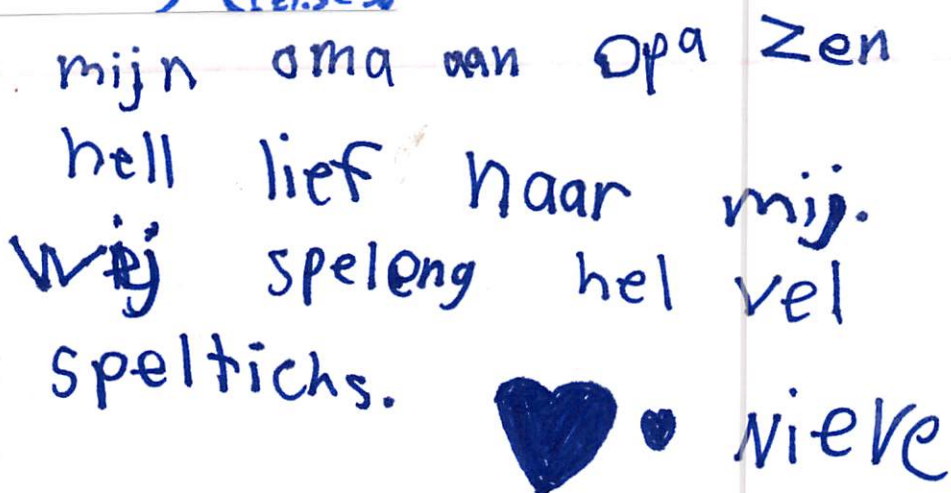 mijn oma aan opa zen
hell lief naar mij.
Wij speleng hel vel
speltichs.
Nieve